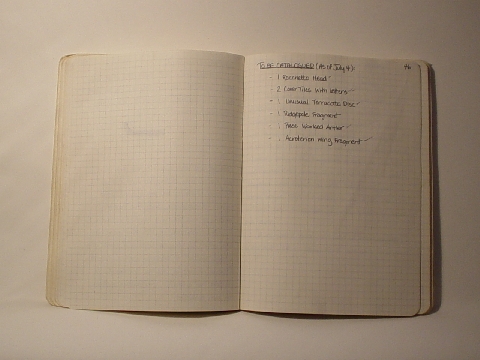 TO BE CATALOGUED (As of July 4):
- 1 Rosehette Head
- 2 Cover Tiles with letters ✓
- 1 Unusual Terracotta Disc ✓
- 1 Ridgepole Fragment ✓
- 1 Piece Worked Antler ✓
- 1 Acroterion wing Fragment ✓